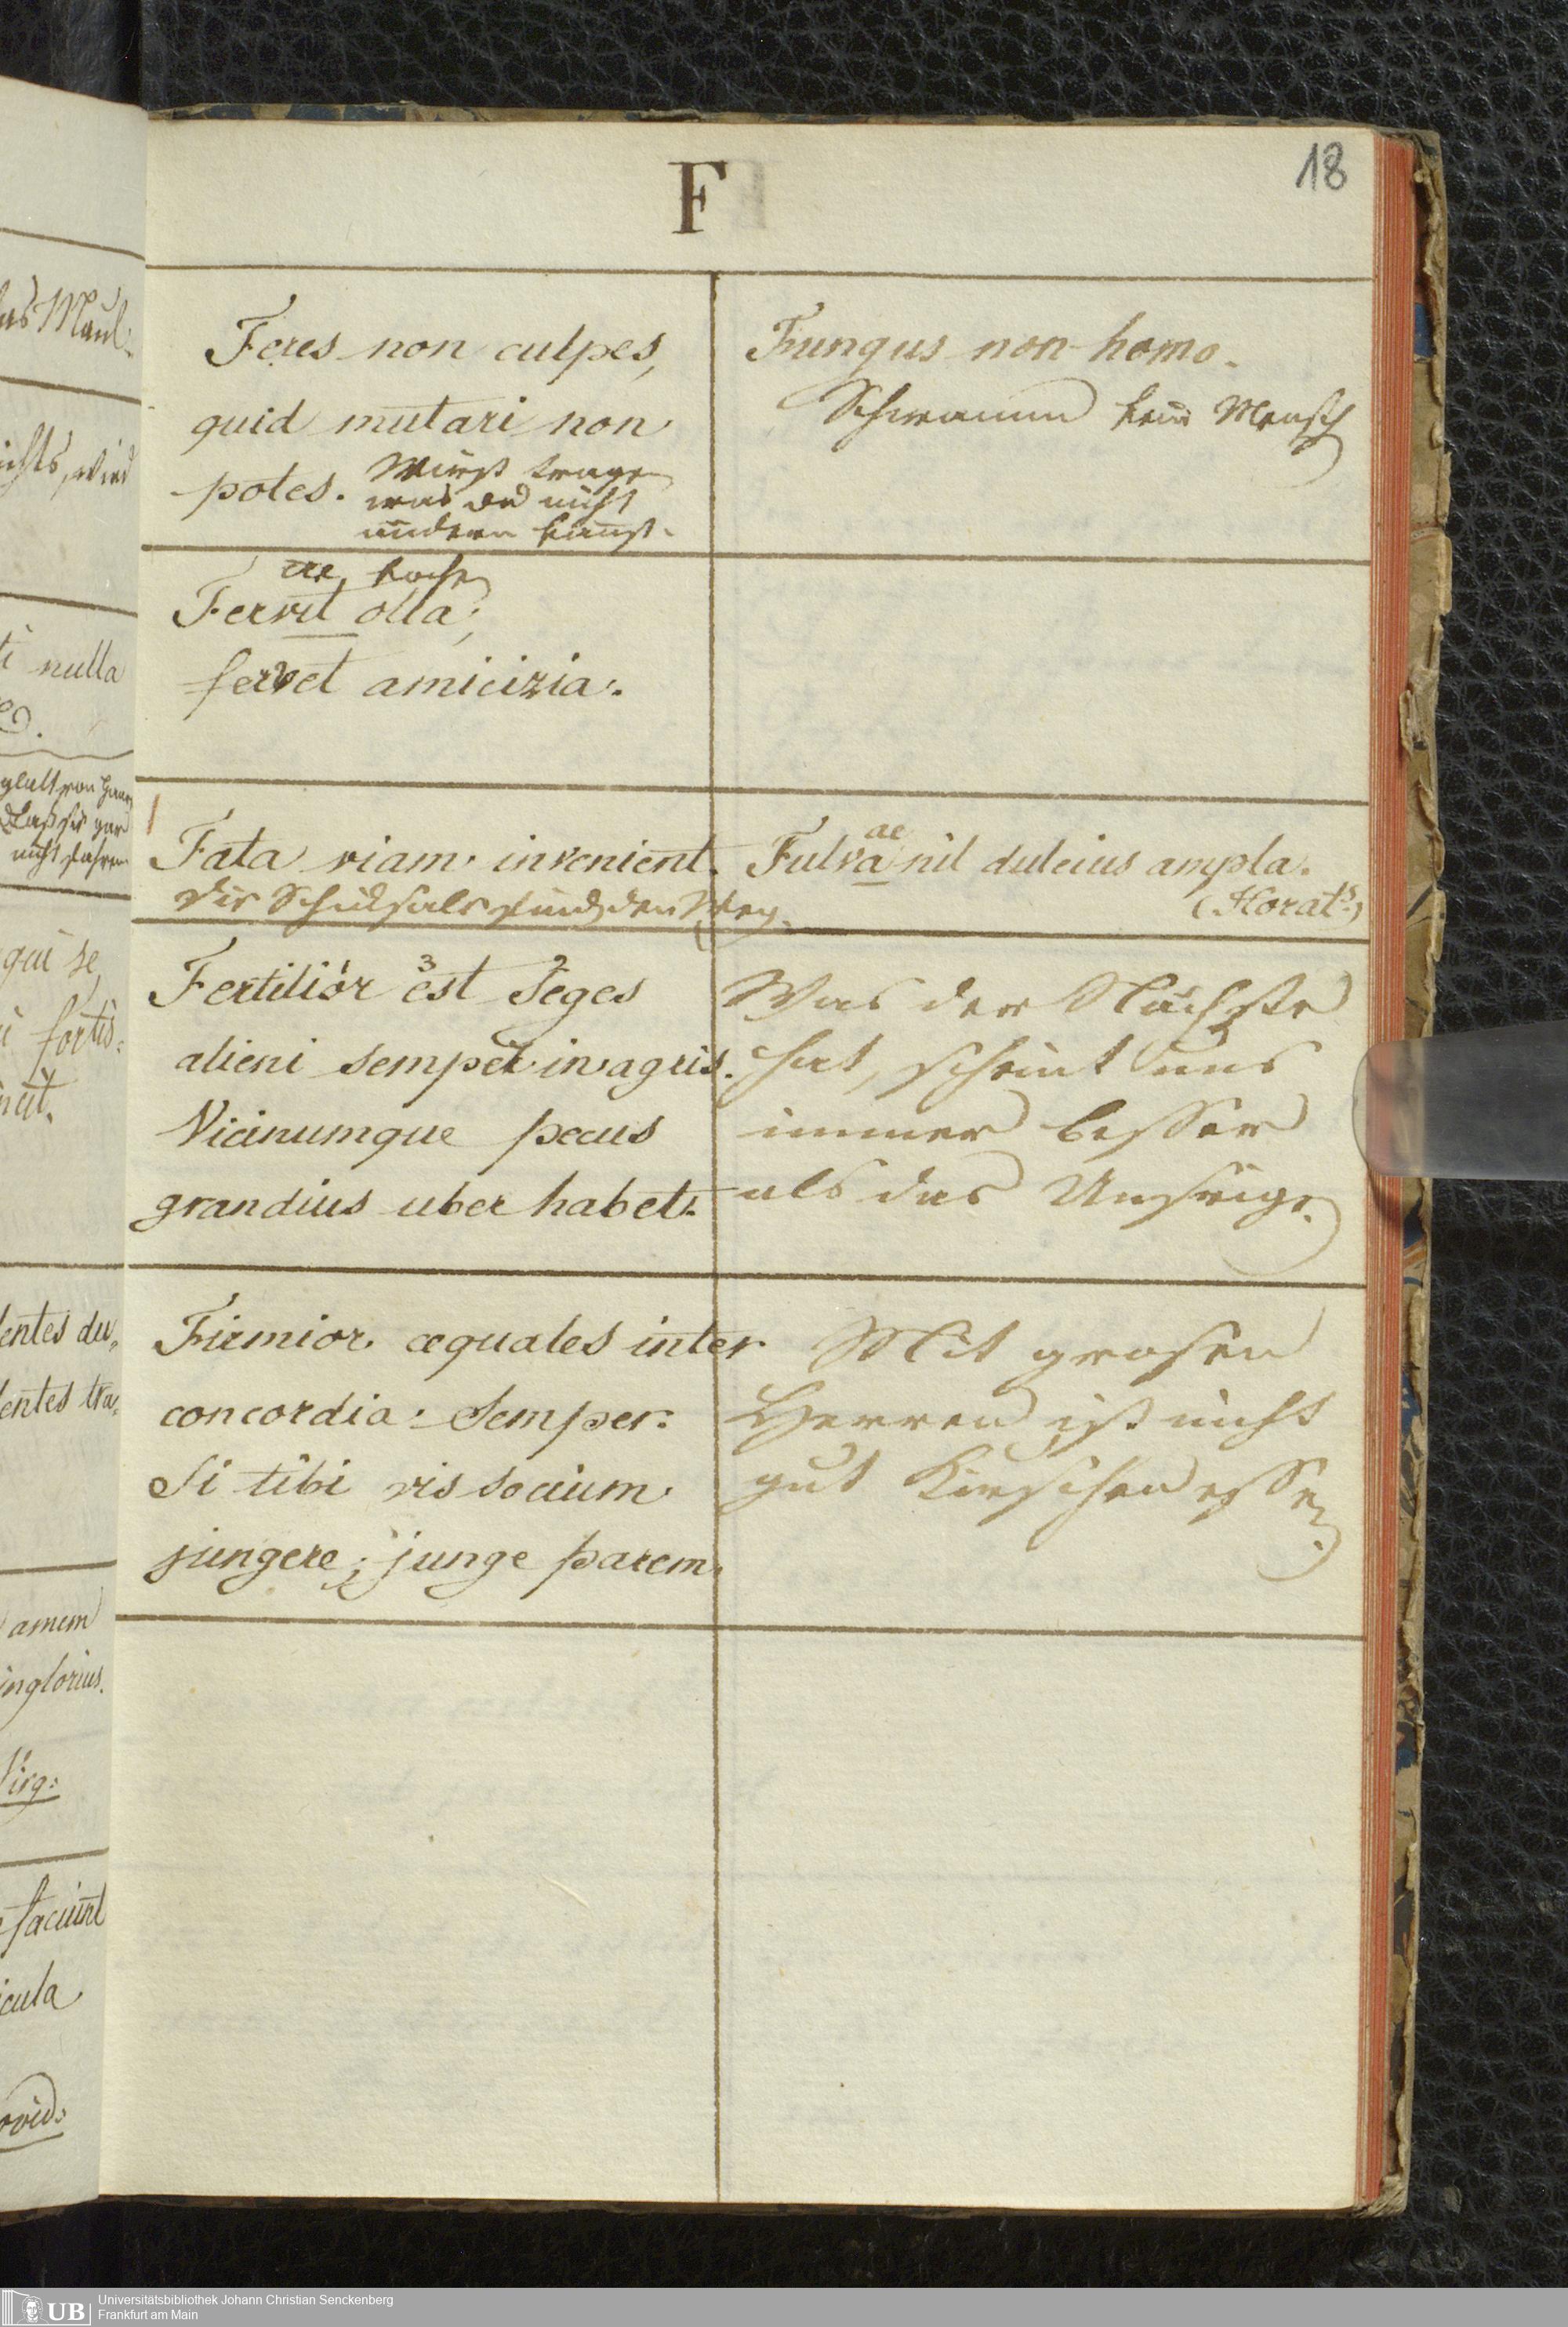 F
18
Feres non culpes,
quid mutari non
potes. Mußt tragen
was du nicht
ändern kanst.
Fungus non homo.
Schwamm kein Mensch
ae, koche
Fervit olla;
fervet amicizia.
Fata viam invenient.
die Schicksale finden den Weg.
ae
Fulva nil dulcius ampla.
(Horat:)
1 3 2
Fertilior est seges
alieni semper in agris.
Vicinumque pecus
grandius uber habet.
Was der Nächste
hat, scheint uns
immer besser
als das Unsrige.
Firmior aequales inter
concordia: semper:
Si tibi vis socium
jungere; junge parem.
Mit grosen
Herren ist nicht
gut Kirschen essen.
as Maul.
ichts, wird
ti nulla
glatt von
daß sie gar
nicht
qui se
i fortis:
entes du,
entes tra,
amem
inglorius.
Virg:
faciunt
icula
ovid:
UB Universitätsbibliothek Johann Christian Senckenberg
Frankfurt am Main